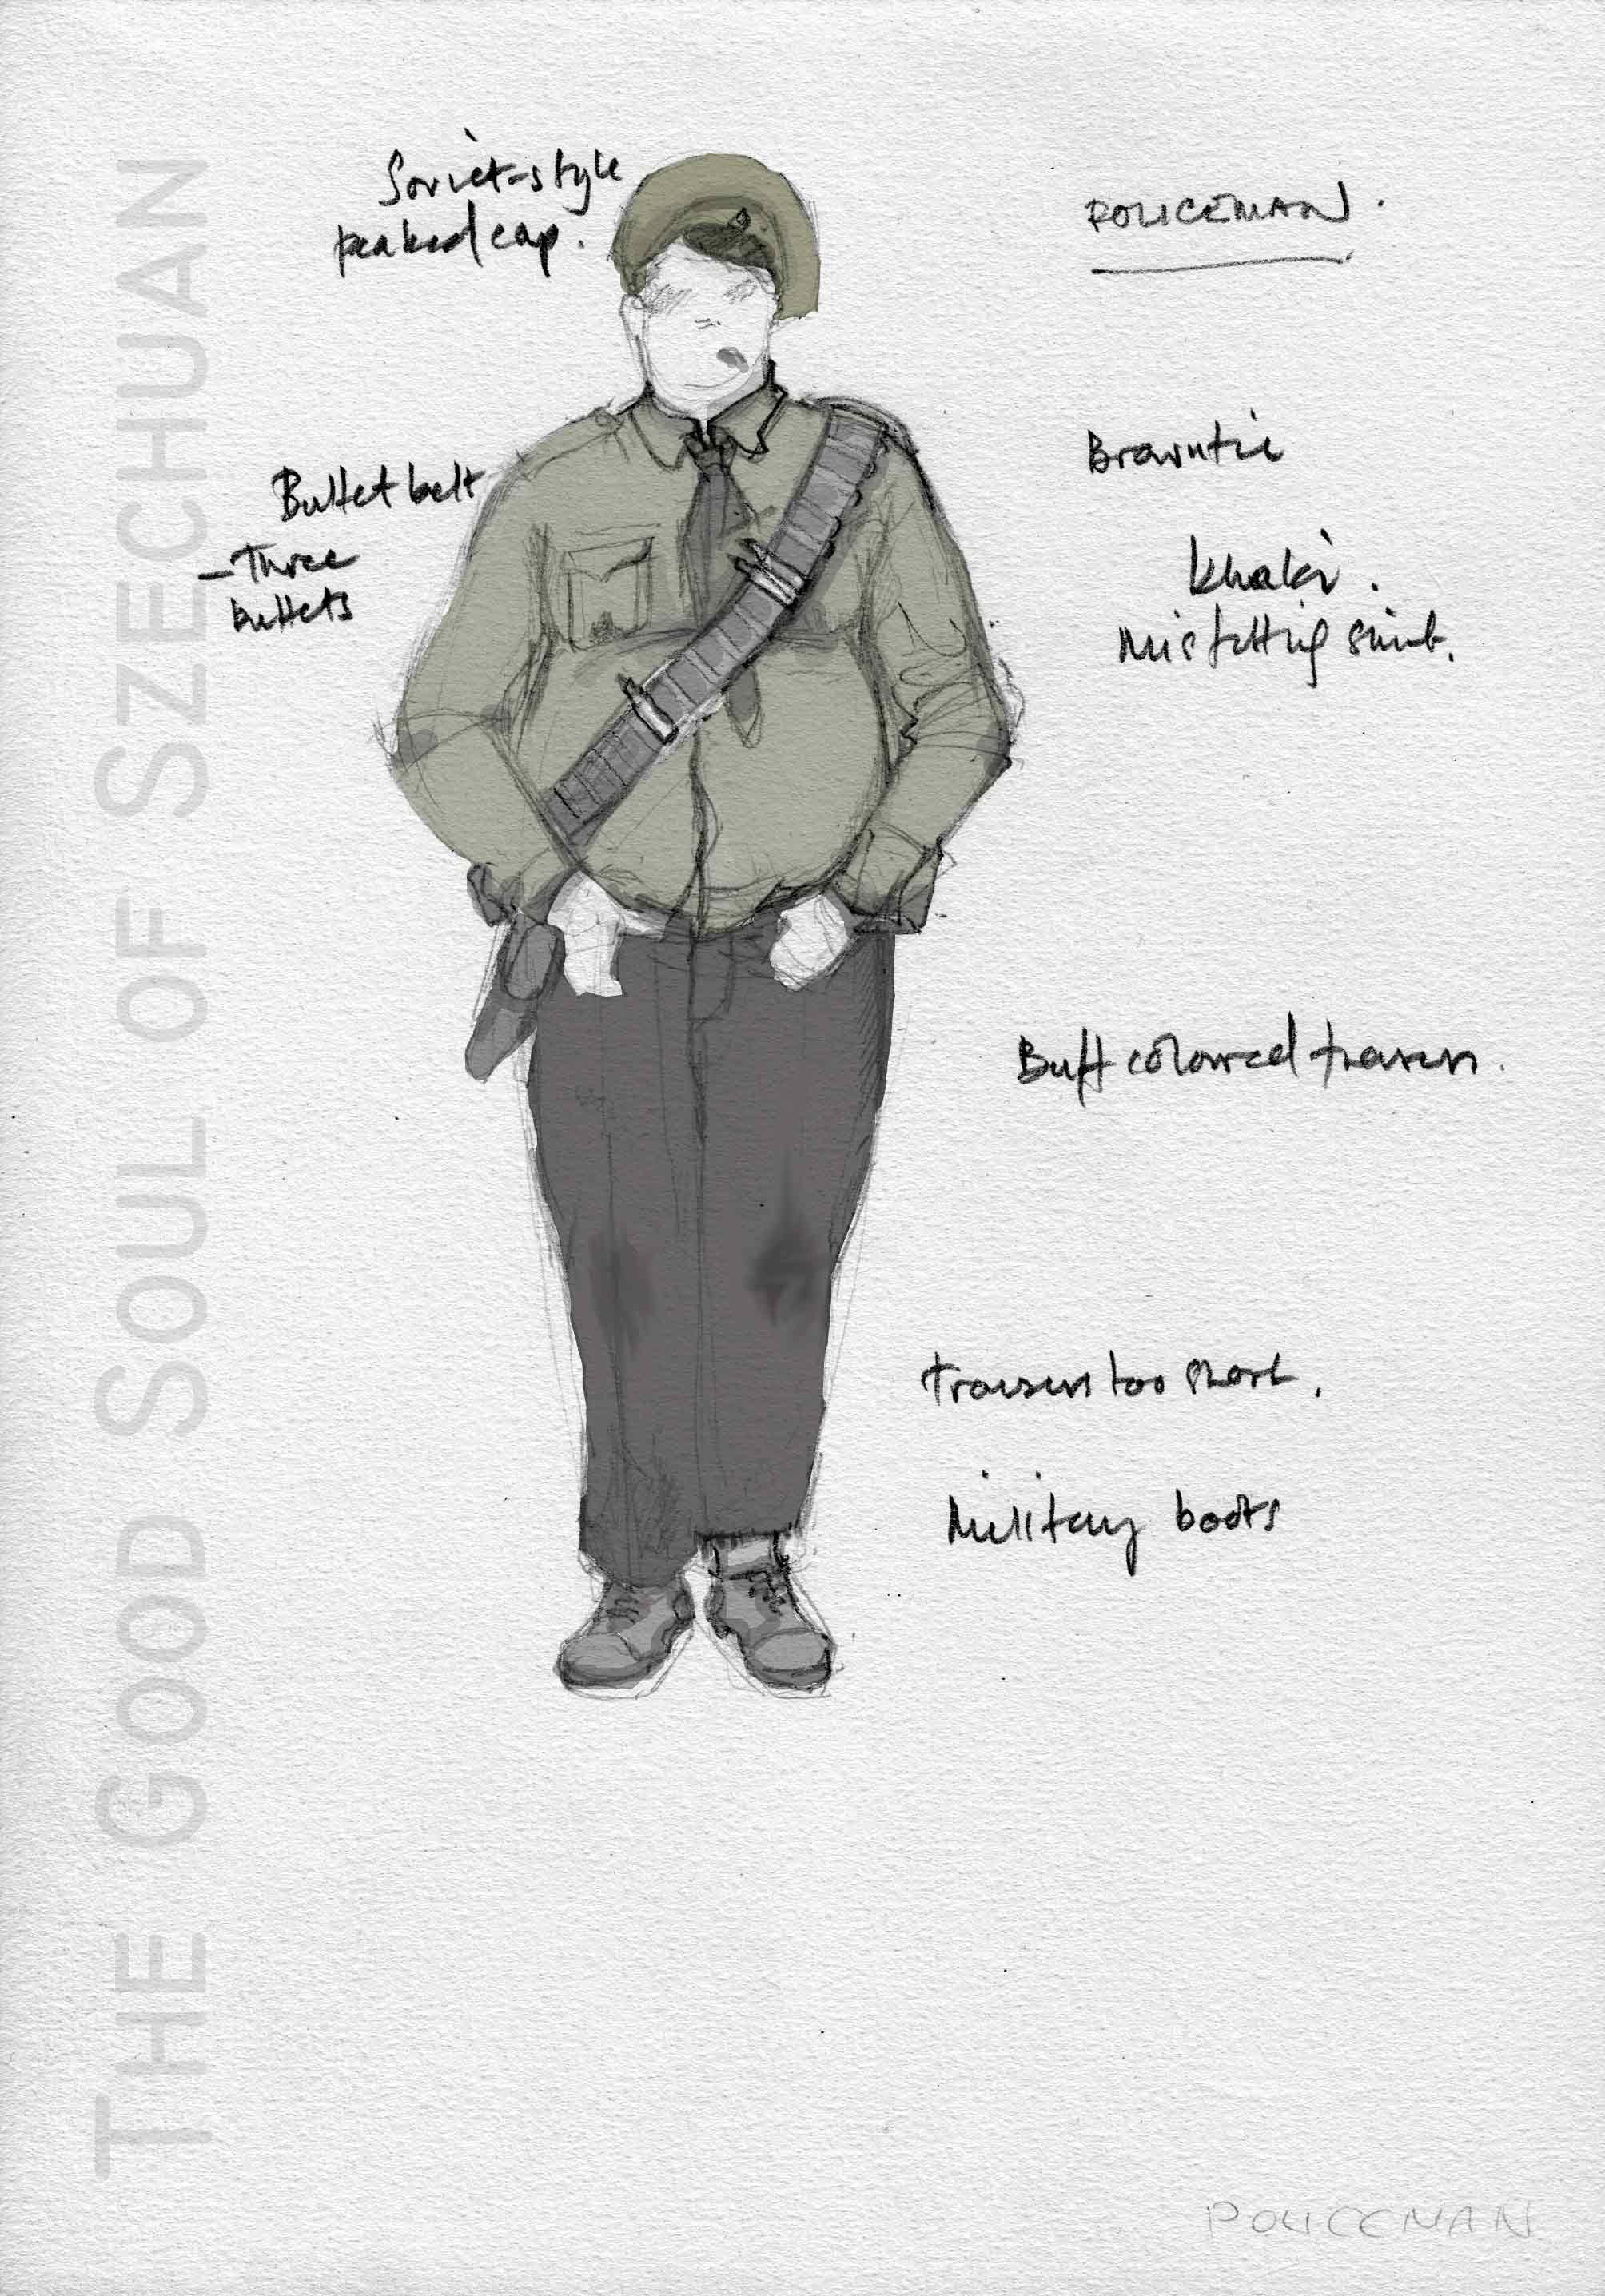 Soviet-style
peaked cap.
POLICEMAN.
Bullet belt
- Three
bullets
Brown tie
Khaki.
Misfitting shirt.
Buff coloured trousers.
Trousers too short.
Military boots
THE GOOD SOUL OF SZECHUAN
POLICEMAN